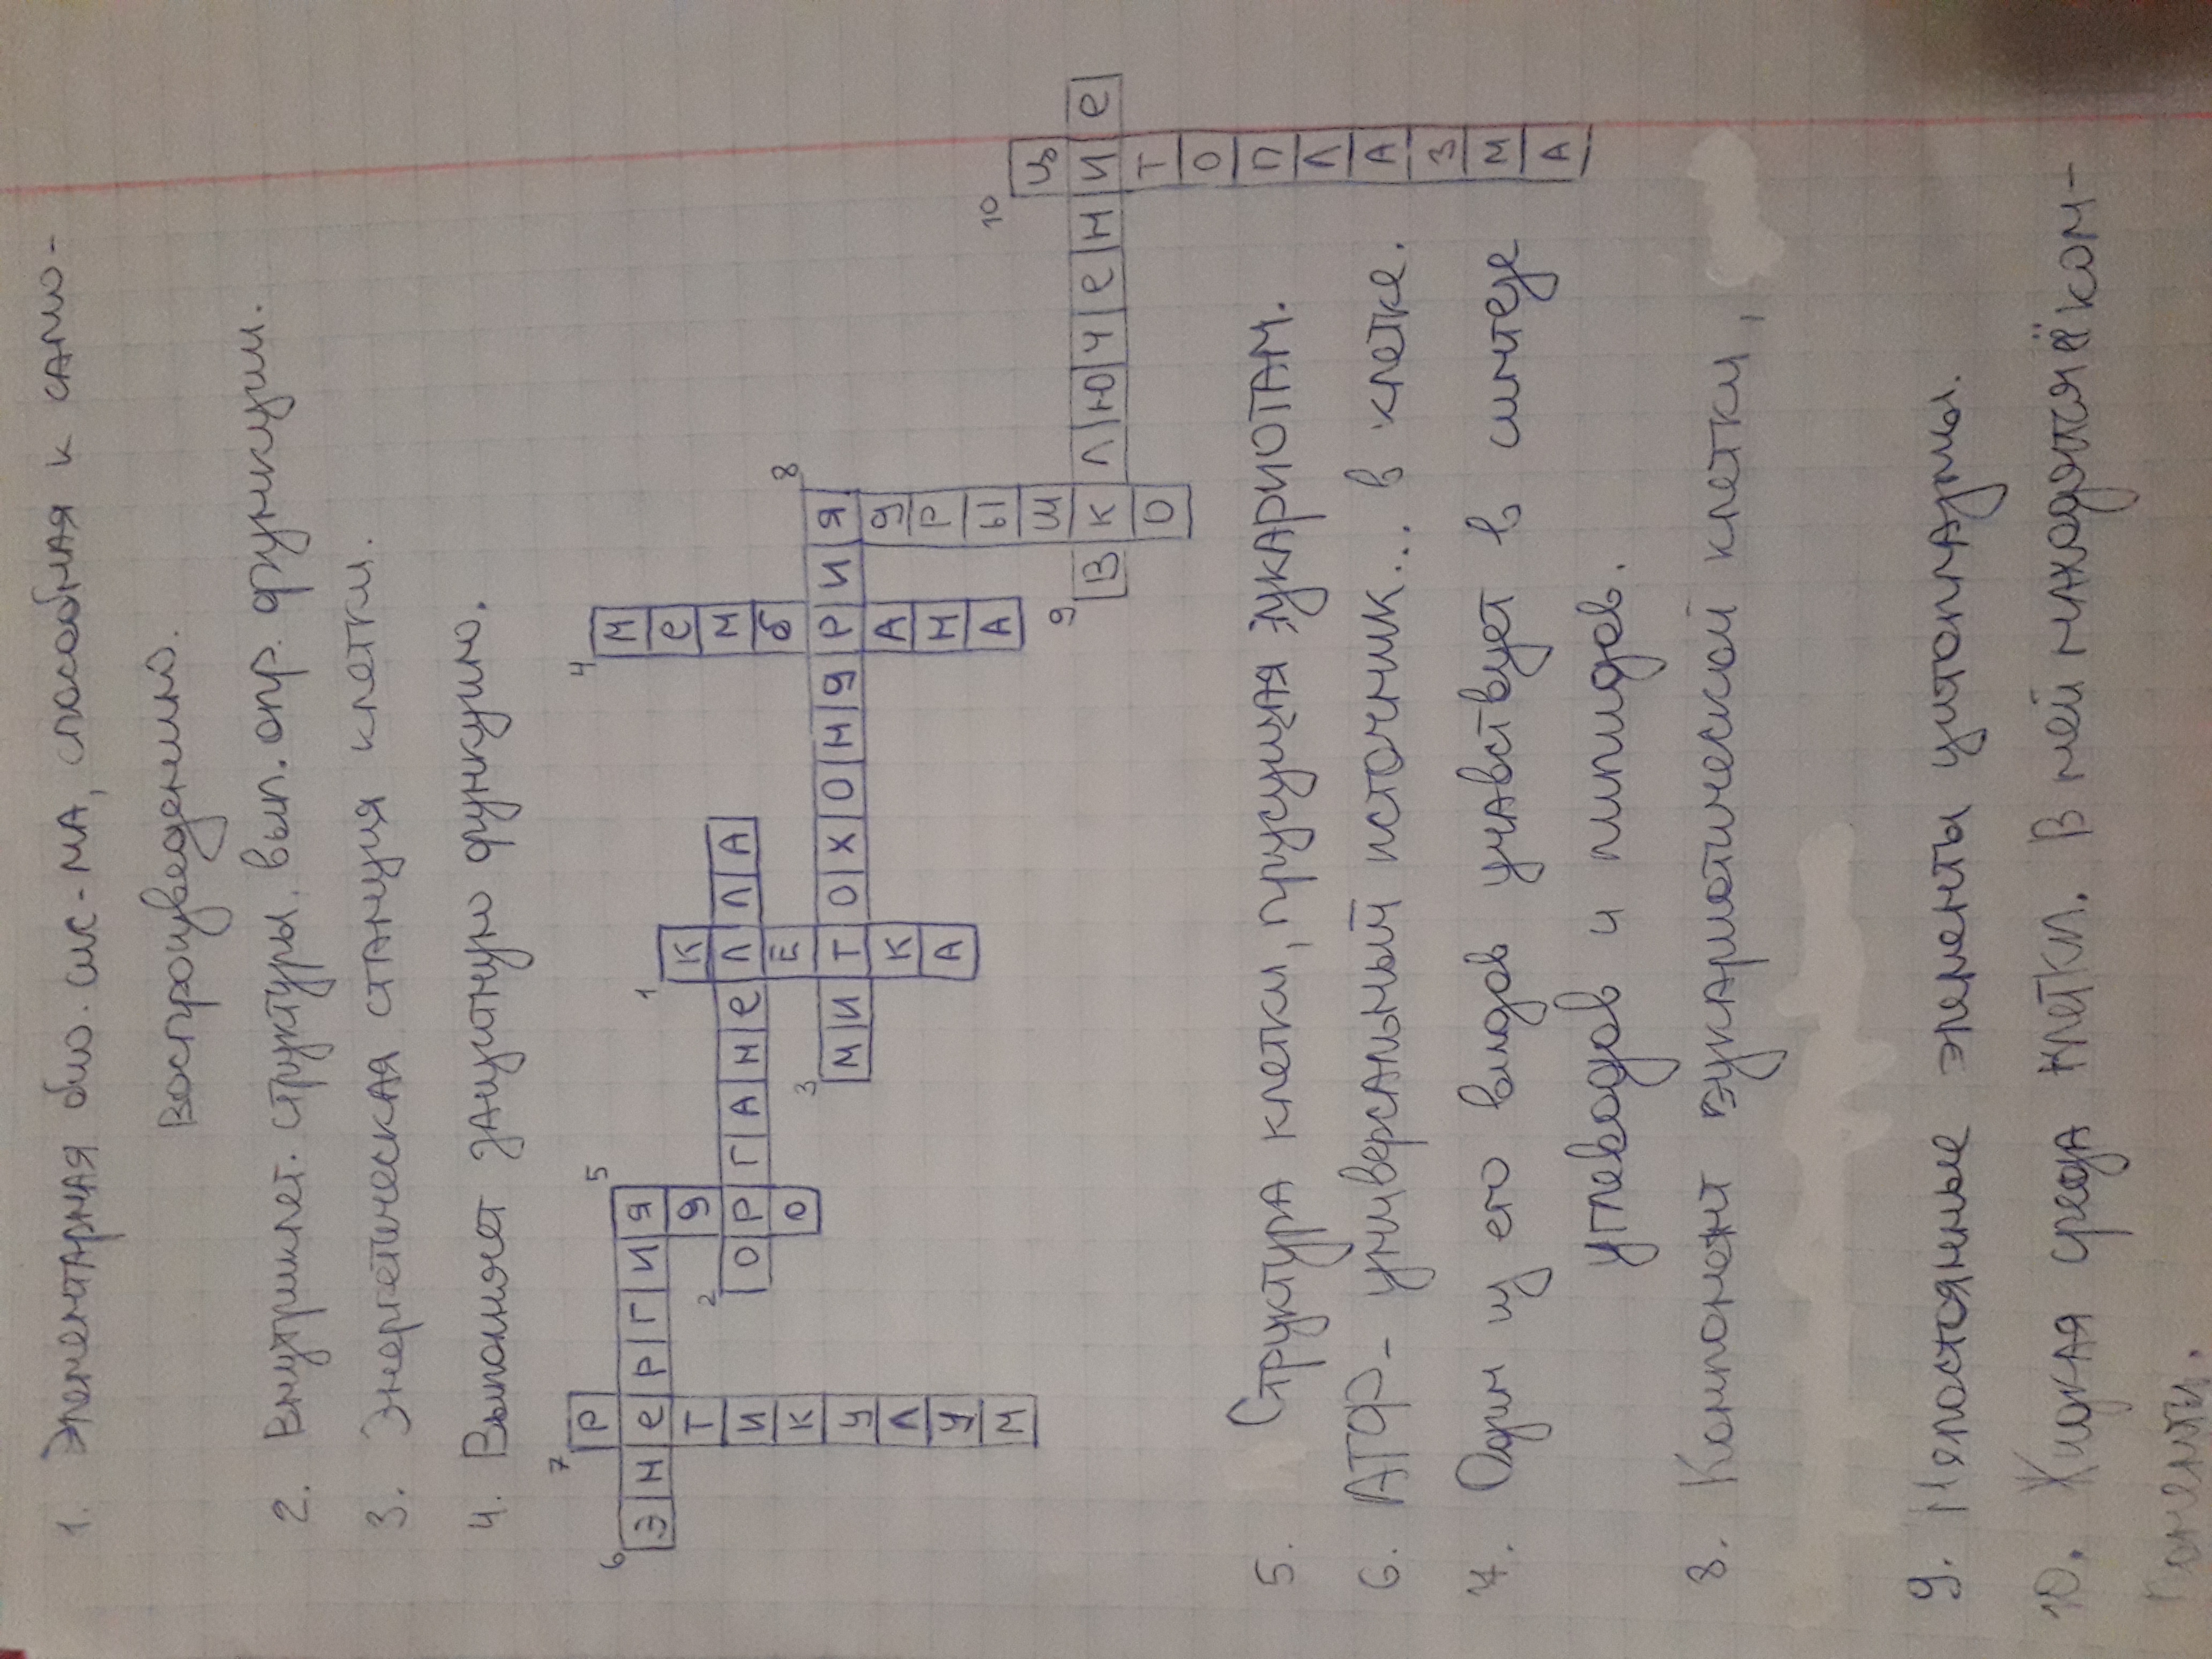 1. Элементарная био. сис-ма, способная к само-
воспроизведению.
2. Внутриклет. структуры, вып. опр. функции.
3. Энергетическая станция клетки.
4. Выполняет защитную функцию.
7
Р
6 ЭНЕРГИЯ 5
ЕТИКУЛУМ
ЯДРО
2 ОРГАНЕЛЛА
1 КЛЕТКА
3 МИТОХОНДРИЯ
4 МЕМБРАНА
8 ЯДРЫШКО
9 ВКЛЮЧЕНИЕ
10 ЦИТОПЛАЗМА
5. Структура клетки, присущая эукариотам.
6. АТФ - универсальный источник... в клетке.
7. Один из его видов учавствует в синтезе
углеводов и липидов.
8. Компонент эукариотической клетки,
9. Непостоянные элементы цитоплазмы.
10. Жидкая среда клетки. В ней находятся её ком-
поненты.